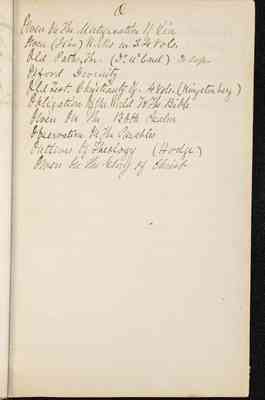 O
Owen On The Mortification Of Sin
Owen (John) Works in 24 Vols.
Old Paths, The (Dr McCaul) 2 cops
Oxford Divinity
Old Test. Christianity Of 4 Vols. (Hengstenberg)
Obligation Of The World To The Bible
Owen On The 130th Psalm
Observation On The Parables
Outlines Of Theology (Hodge)
Owen On the Glory of Christ